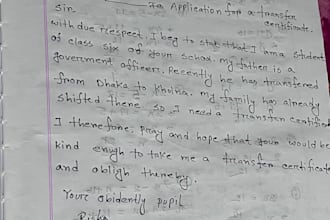 Application for a transfer
sir. certificate.
with due respect, I beg to state that I am a student
of class six of your school. my father is a
government officer. Recently he has transfered
from Dhaka to Khulna. my family has already
shifted there so I need a transfer certificate
I therefore, pray and hope that your would be
kind enugh to take me a transfer certificate
and obligh thereby.
Your obidently pupil